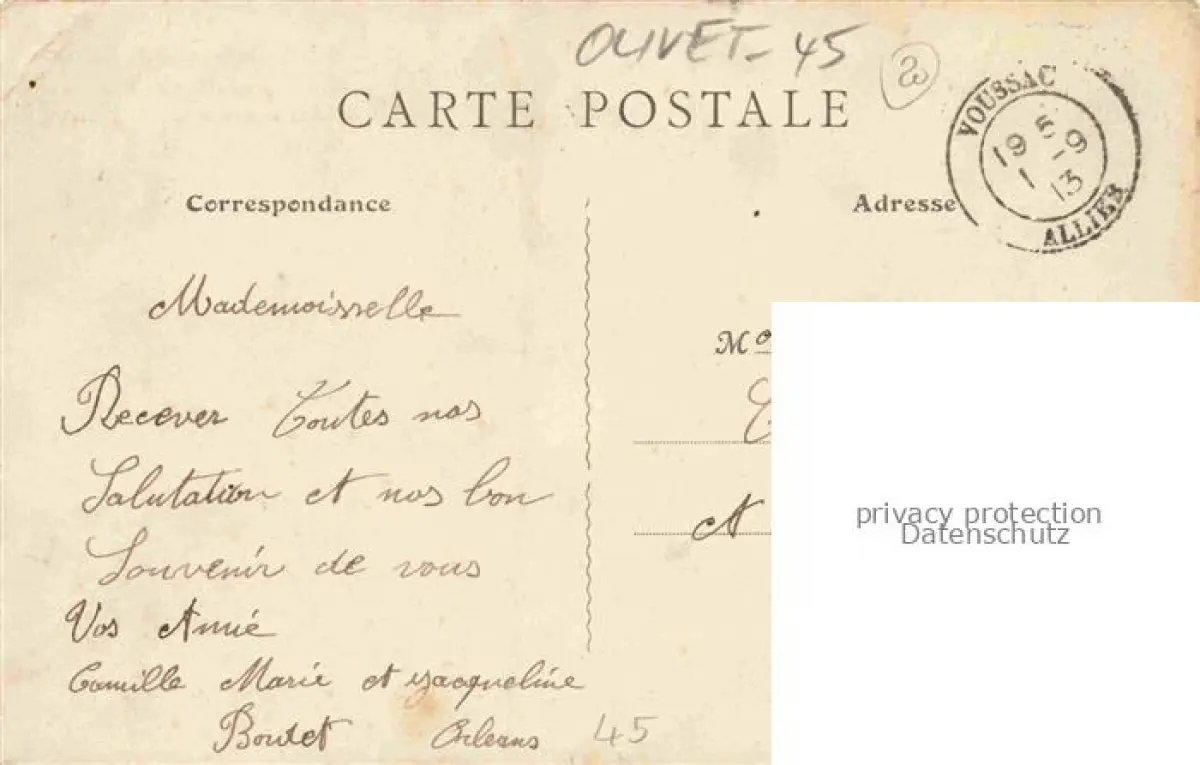 OLIVET - 45
CARTE POSTALE
VOUSSAC
19 5
1 -9
13
ALLIER
Correspondance
Adresse
Mademoisselle
Recever Toutes nos
Salutation et nos bon
Souvenir de vous
Vos Amié
Camille Marie et Jacqueline
Boutet Orleans
45
M
A
privacy protection
Datenschutz